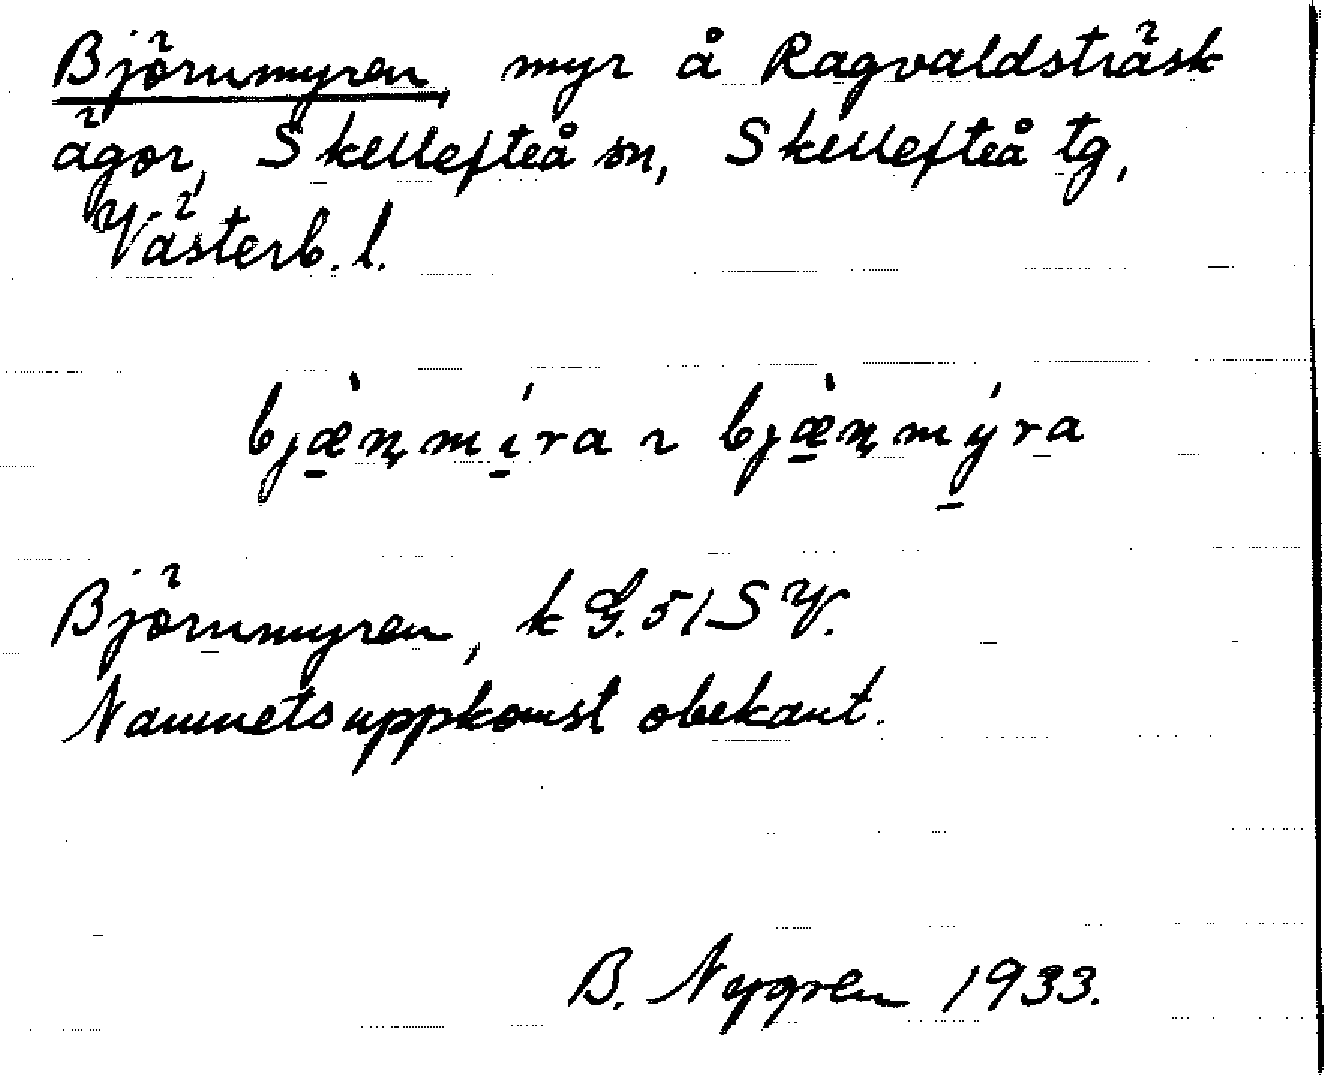 Björnmyren, myr å Ragvaldsträsk
ägor, Skellefteå sn, Skellefteå tg,
Västerb. l.
bjæ̠̀ṇmí̠ra ~ bjæ̠̀ṇmý̠ra
Björnmyren, k G. 51 SV.
Namnets uppkomst obekant.
B. Nygren 1933.